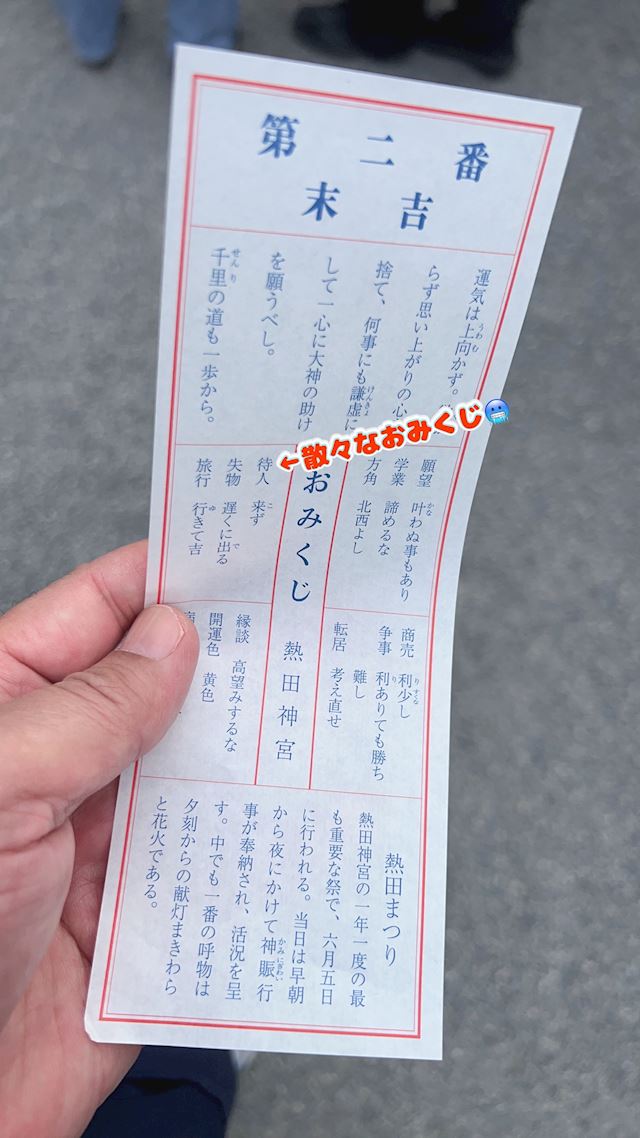 第二番
末吉
運気は上向かず。
らず思い上がりの心
捨て、何事にも謙虚に
して一心に大神の助け
を願うべし。
千里の道も一歩から。
←散々なおみくじ🥶
願望 叶わぬ事もあり
学業 諦めるな
方角 北西よし
おみくじ 熱田神宮
待人 来ず
失物 遅くに出る
旅行 行きて吉
商売 利少し
争事 利ありても勝ち
難し
転居 考え直せ
縁談 高望みするな
開運色 黄色
熱田まつり
熱田神宮の一年一度の最
も重要な祭で、六月五日
に行われる。当日は早朝
から夜にかけて神賑行
事が奉納され、活況を呈
す。中でも一番の呼物は
夕刻からの献灯まきわら
と花火である。